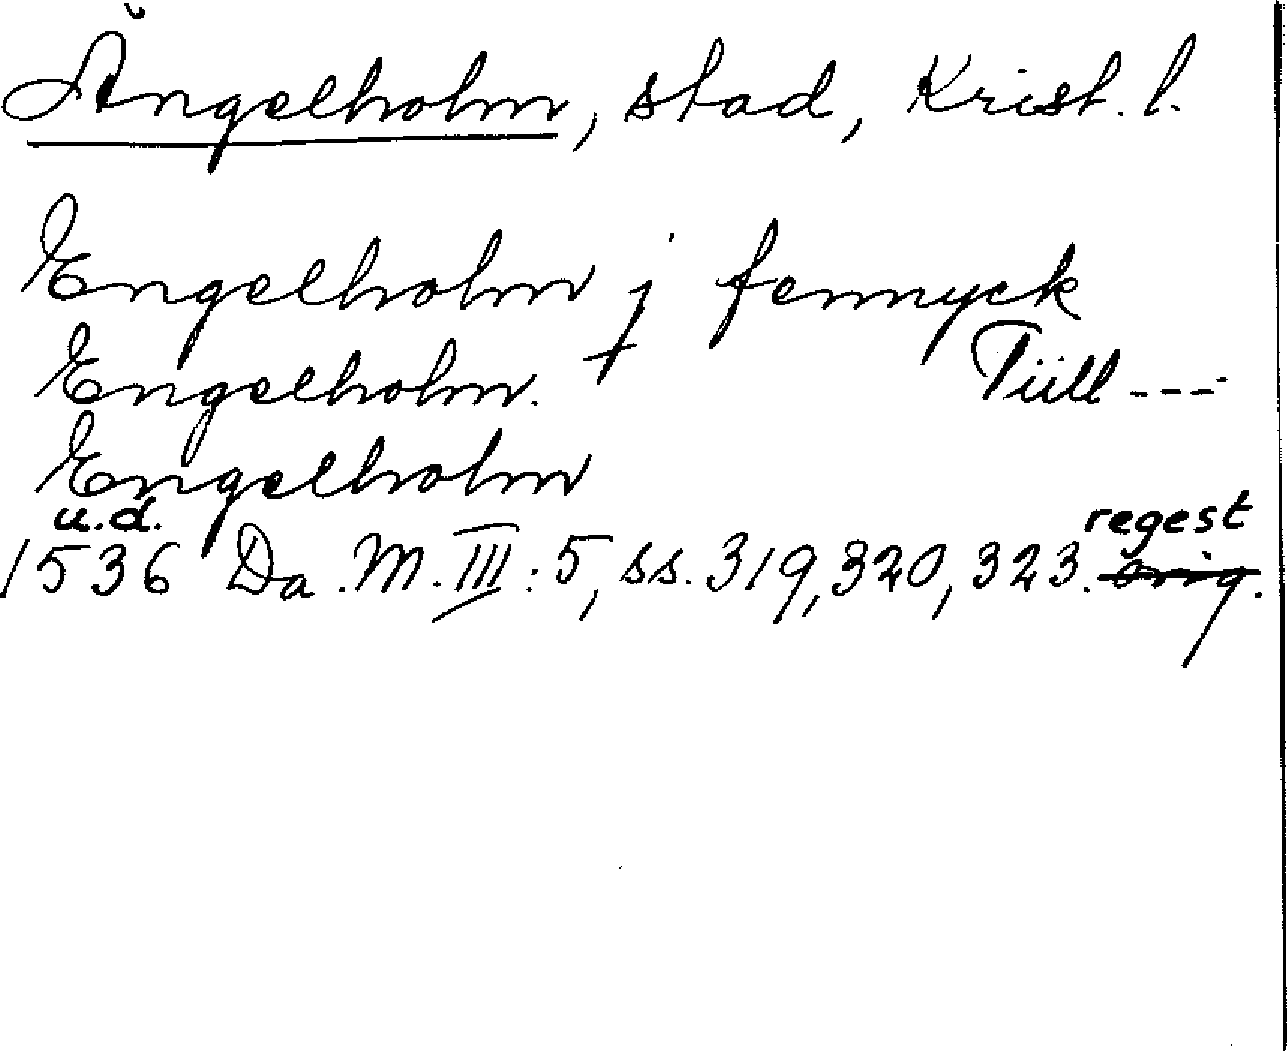 Ängelholm, stad, Krist. l.
Engelholm j fennyck
Engelholm. Tüll ---
Engelholm
u.d. regest
1536 Da. M. III: 5, ss. 319, 320, 323. orig.